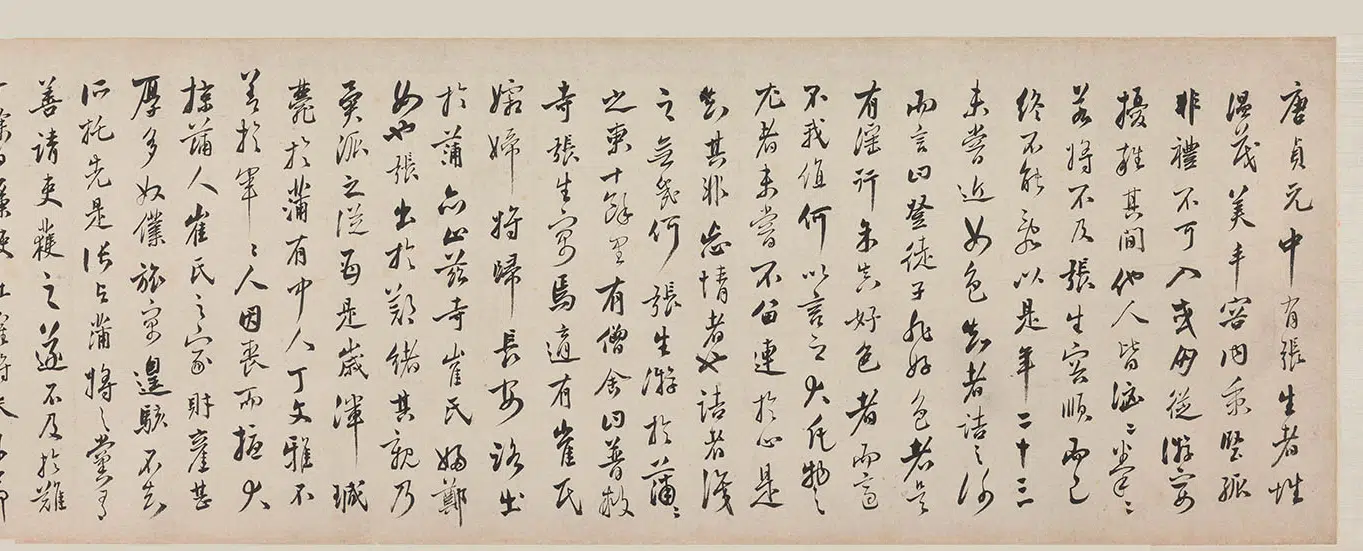 唐貞元中有張生者性
溫茂美丰容內秉堅孤
非禮不可入或朋從游宴
擾雜其間他人皆洶〻拳〻
若將不及張生容順而已
終不能亂以是年二十三
未嘗近女色知者詰之謝
而言曰登徒子非好色者是
有淫行余真好色者而適
不我值何以言之大凡物之
尤者未嘗不留連於心是
知其非忘情者也詰者識
之無幾何張生游於蒲〻
之東十餘里有僧舍曰普救
寺張生寓焉適有崔氏
孀婦將歸長安路出
於蒲亦止茲寺崔氏婦鄭
女也張出於鄭緒其親乃
異派之從母是歲渾瑊
薨於蒲有中人丁文雅不
善於軍〻人因喪而擾大
掠蒲人崔氏之家財產甚
厚多奴僕旅寓遑駭不知
所托先是張與蒲將之黨有
善請吏護之遂不及於難